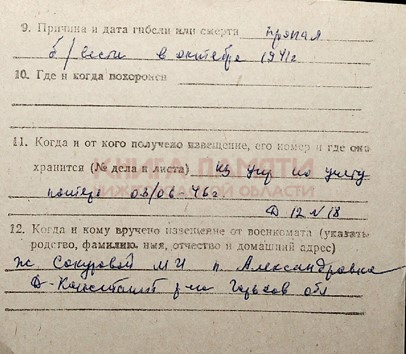 9. Причина и дата гибели или смерти пропал
б/вести в октябре 1941г
10. Где и когда похоронен
11. Когда и от кого получено извещение, его номер и где оно
хранится (№ дела и листа) из упр по учету
потерь 03/06-46г
Д 12 № 18
КНИГА ПАМЯТИ
НИЖЕГОРОДСКОЙ ОБЛАСТИ
12. Когда и кому вручено извещение от военкомата (указать
родство, фамилию, имя, отчество и домашний адрес)
ж Сокуровой МИ п. Александровка
Д-Константин р-н Горьков обл